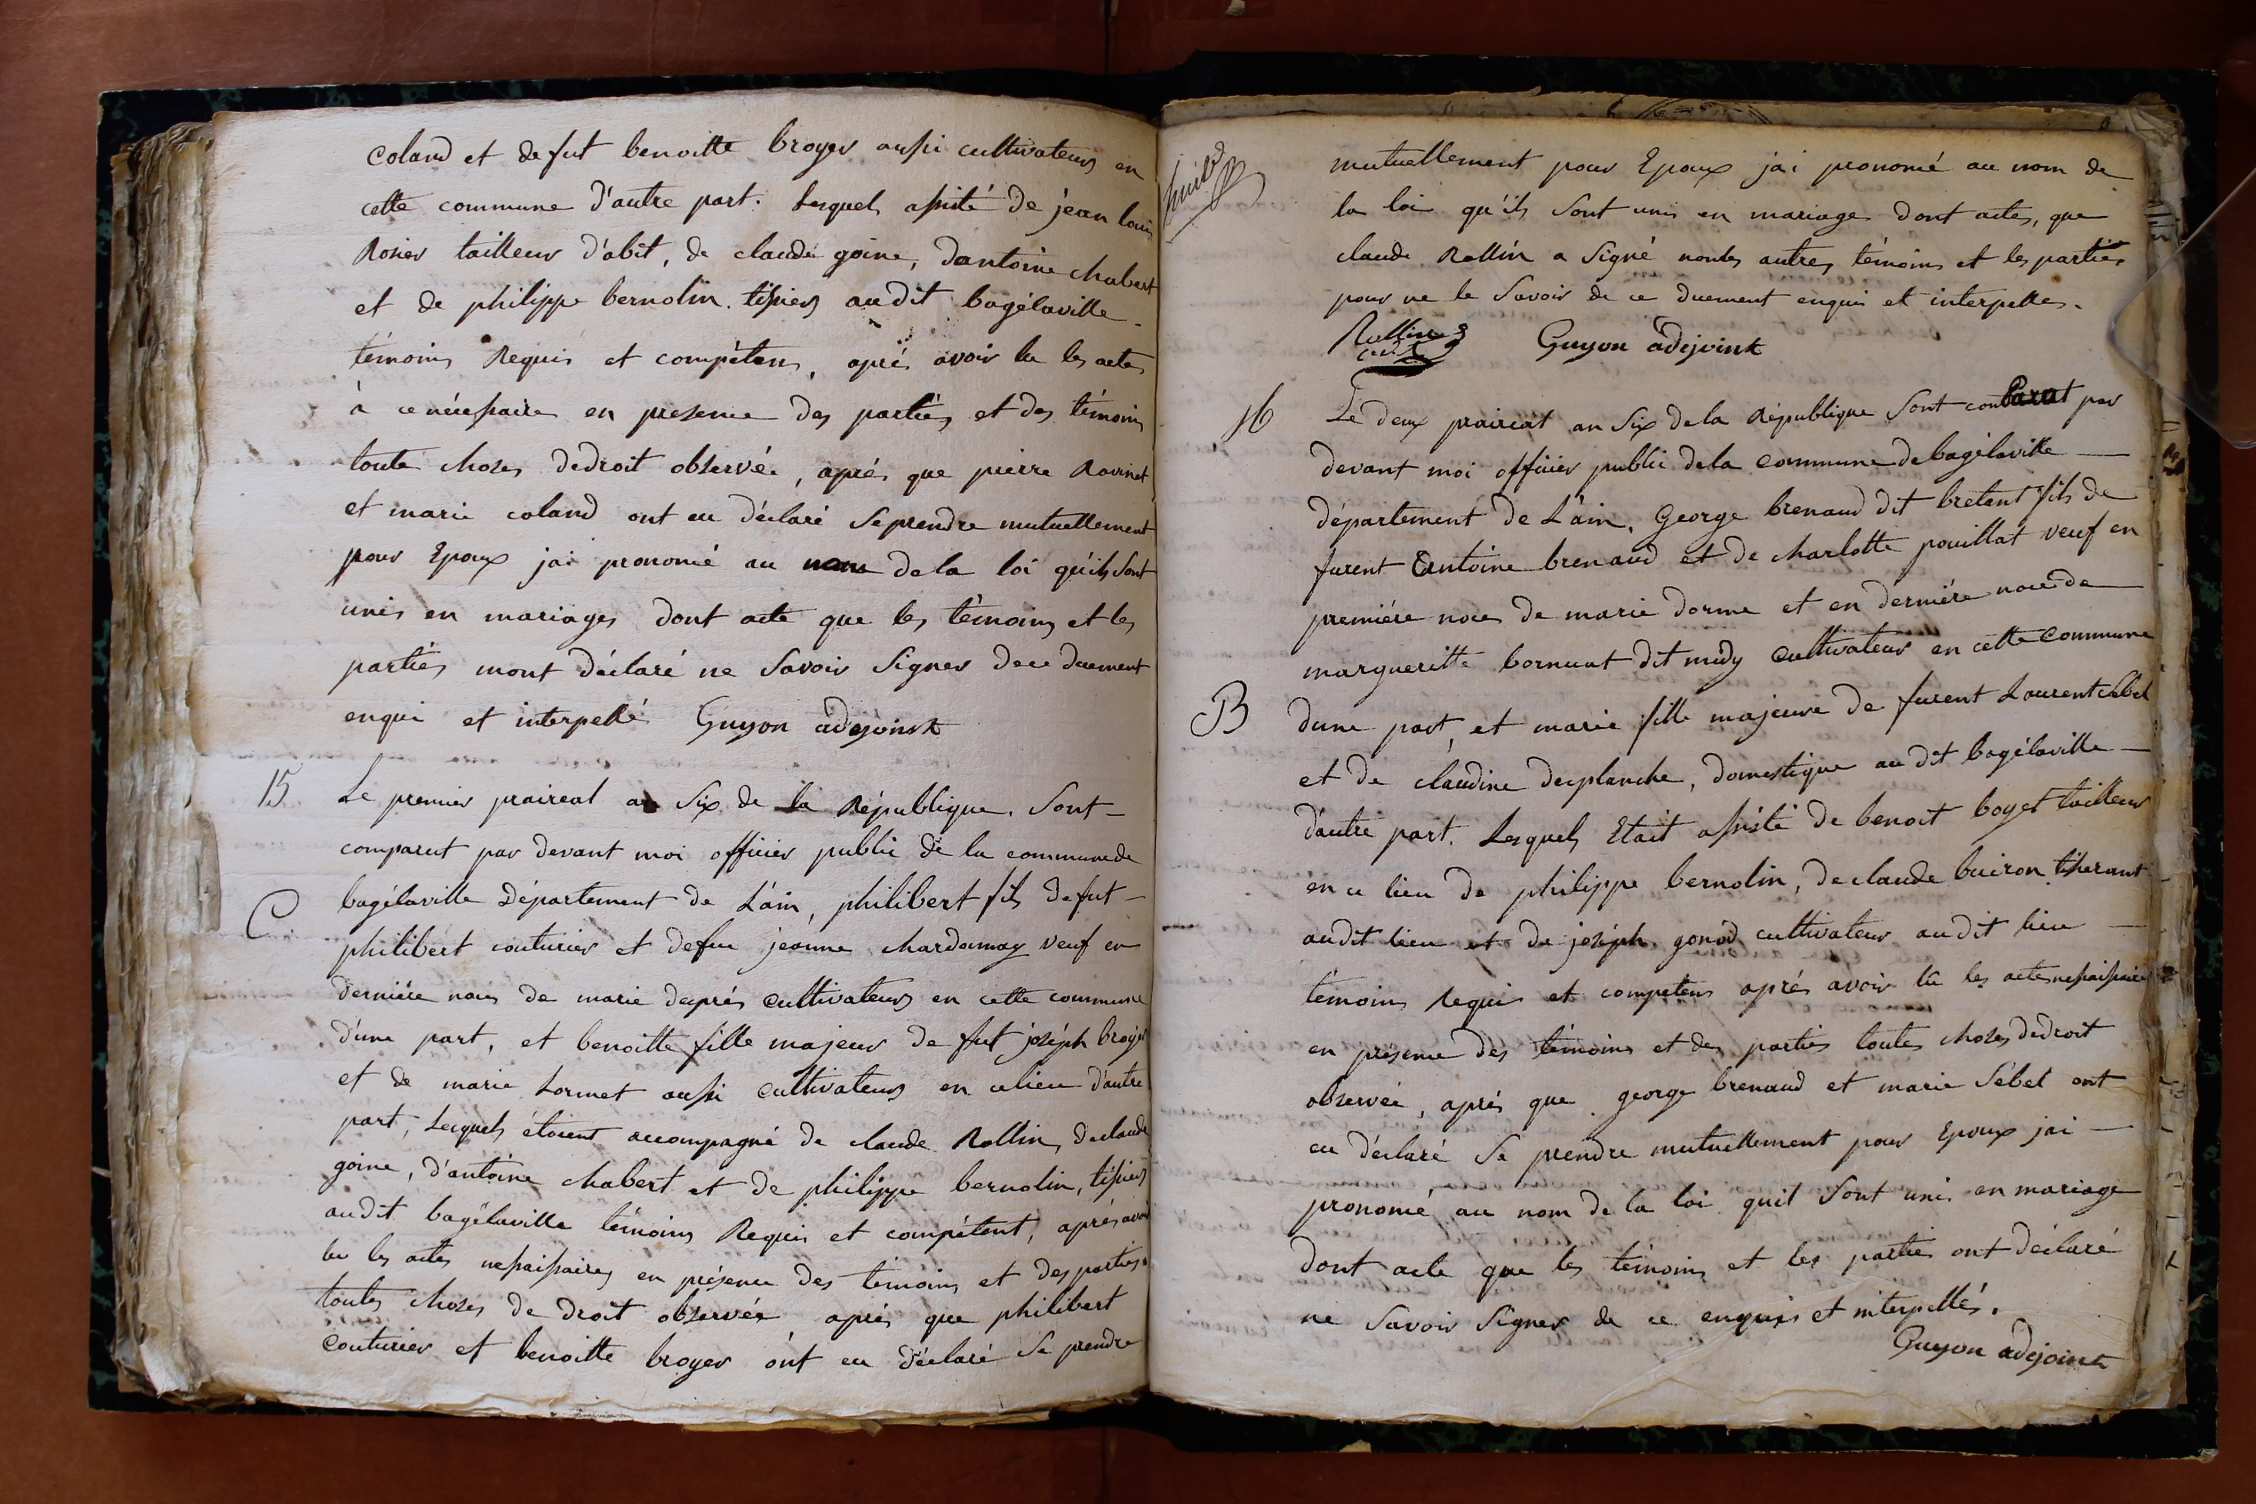 coland et de fut benoitte broyer aussi cultivateurs en
cette commune d'autre part. Lesquels assité de jean louis
Rosier tailleur d'abit, de claude goine, dantoine chabert
et de philippe bernolin tissiers audit bagélaville
témoins Requis et compétens, aprés avoir lu les actes
à ce nécessaire en presence des partiés et des témoins
toute choses dedroit observée, aprés que pierre Ravinet
et marie coland ont eu déclaré Seprendre mutuellement
pour Epoux jai prononcé au nom dela loi qu'ils Sont
unis en mariages dont acte que les témoins et les
partiés mont déclaré ne Savoir Signer dece duement
enqui et interpellé Guyon adejoinst
15 Le premier praireal an Six de la République. Sont
comparut par devant moi officier public de la commune de
bagélaville Département de L'ain, philibert fils defut
C
philibert couturier et defue jeanne chardamay veuf en
derniére noces de marie després cultivateurs en cette commune
d'une part, et benoitte fille majeur de fut joséph broyer
et de marie Lormet aussi cultivateurs en celieu d'autre
part, Lesquels étoient accompagné de claude Rollin, declaude
goine, d'antoine chabert et de philippe bernolin, tissiers
audit bagélaville témoins Requis et compétent, aprés avoir
lu les actes nessaissaires en présence des témoins et des parties.
toutes choses de droit observée aprés que philibert
couturier et benoitte broyer ont eu déclaré Se prendre
mutuellement pour Epoux jai prononcé au nom de
la loi qu'ils Sont unis en mariages dont actes, que
claude Rollin a Signé nonles autres témoins et les partiés
pour ne le Savoir de ce duement enquis et interpelles.
Rollin Guyon adejoinst
16 Le deux praireal an Six dela République Sont comparut par
devant moi officier public dela commune de bagélaville
département de L'ain, George brenaud dit bretent fils de
furent Antoine brenaud et de charlotte pouillat veuf en
premiére noces de marie dorme et en derniére noce de
margueritte bornuat dit midy cultivateur en cette commune
B
dune part, et marie fille majeure de furent Laurent Sébel
et de claudine desplanche, domestique audit bagélaville
d'autre part. Lesquels Etait assisté de benoit boyet tailleur
en ce lieu de philippe bernolin, declaude buiron tisserant
audit lieu et de joséph gonod cultivateur audit lieu
témoins Requis et competens aprés avoir lû les actes nessaissaires
en présence des témoins et des parties toutes choses dedroit
observée, aprés que george brenaud et marie Sébel ont
eu déclaré Se prendre mutuellement pour Epoux jai
prononcé au nom de la loi quil Sont unis en mariage
dont acte que les témoins et les partie ont déclaré
ne Savoir Signer de ce enquis et interpellés.
Guyon adejoinst